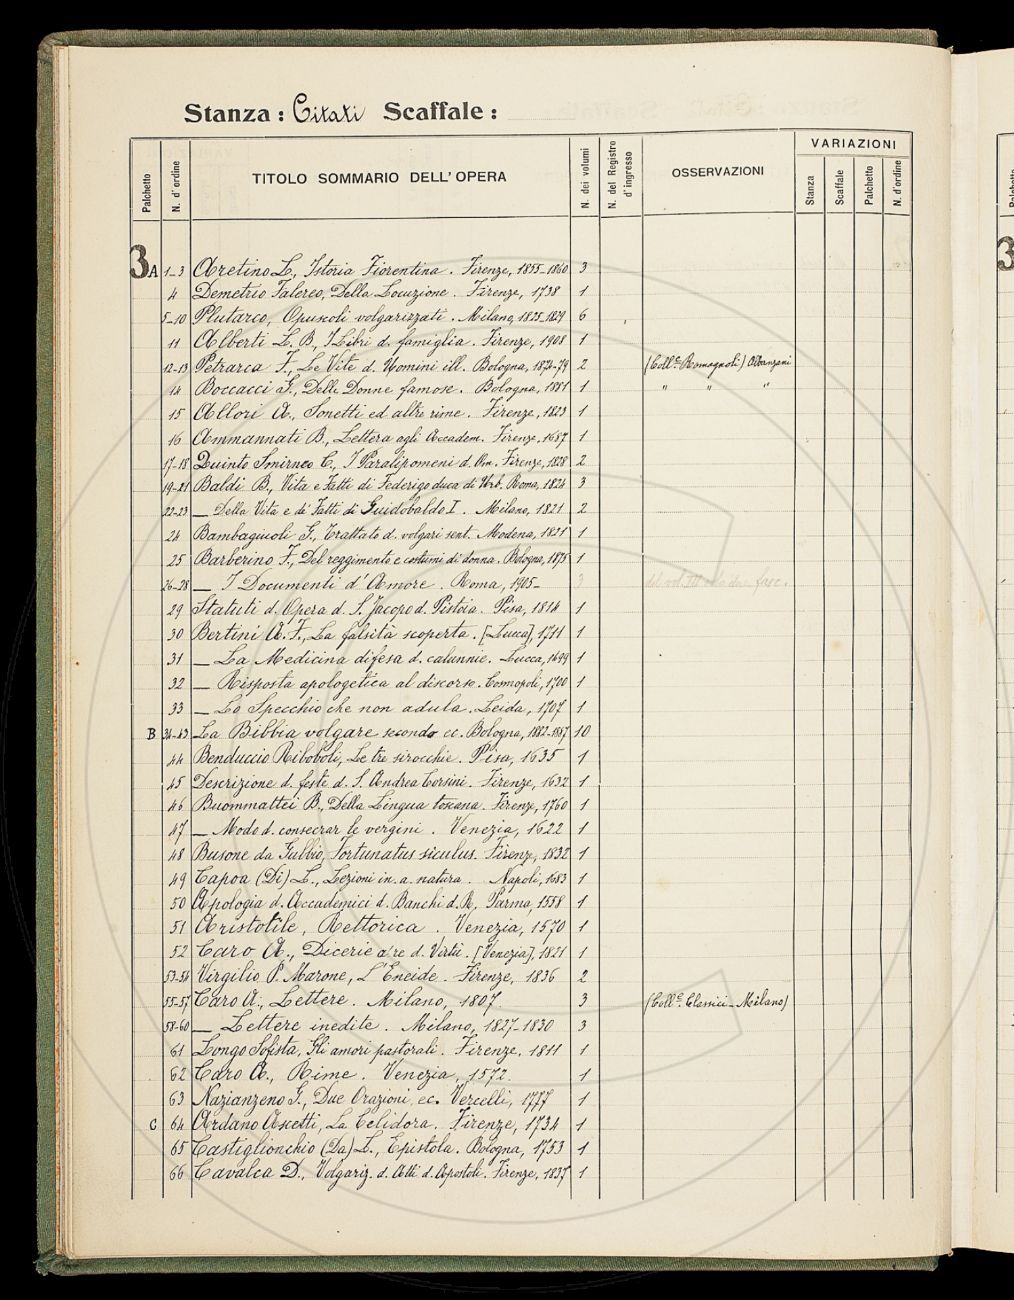 Stanza: Citati Scaffale:
Palchetto N. d'ordine TITOLO SOMMARIO DELL'OPERA N. dei volumi N. del Registro d'ingresso OSSERVAZIONI VARIAZIONI
Stanza Scaffale Palchetto N. d'ordine
3A 1-3 Aretino L., Istoria Fiorentina. Firenze, 1855-1860 3
4 Demetrio Falereo, Della Locuzione. Firenze, 1738 1
5-10 Plutarco, Opuscoli volgarizzati. Milano, 1825-1829 6
11 Alberti L. B., I Libri d. famiglia. Firenze, 1908 1
12-13 Petrarca F., Le Vite d. Uomini ill. Bologna, 1874-79 2 (Coll.e Romagnoli)
14 Boccacci G., Delle Donne famose. Bologna, 1881 1 " " "
15 Allori A., Sonetti ed altre rime. Firenze, 1823 1
16 Ammannati B., Lettera agli Accadem. Firenze, 1687 1
17-18 Quinto Smirneo C., I Paralipomeni d. Om. Firenze, 1828 2
19-21 Baldi B., Vita e Fatti di Federigo duca di Urb. Roma, 1824 3
22-23 — Della Vita e di Fatti di Guidobaldo I. Milano, 1821 2
24 Bambagiuoli G., Trattato d. volgari sent. Modena, 1821 1
25 Barberino F., Del reggimento e costumi di donna. Bologna, 1875 1
26-28 — I Documenti d'Amore. Roma, 1905- 3 del vol. III solo due fasc.
29 Statuti d. Opera d. S. Jacopo d. Pistoia. Pisa, 1814 1
30 Bertini A. F., La falsità scoperta. [Lucca], 1711 1
31 — La Medicina difesa d. calunnie. Lucca, 1699 1
32 — Risposta apologetica al discorso. Cosmopoli, 1700 1
33 — Lo Specchio che non adula. Leida, 1707 1
B 34-43 La Bibbia volgare secondo ec. Bologna, 1882-1887 10
44 Benduccio Riboboli, Le tre sirocchie. Pisa, 1635 1
45 Descrizione d. feste d. S. Andrea Corsini. Firenze, 1632 1
46 Buommattei B., Della Lingua toscana. Firenze, 1760 1
47 — Modo d. consecrar le vergini. Venezia, 1622 1
48 Busone da Gubbio, Fortunatus siculus. Firenze, 1832 1
49 Capoa (Di) L., Lezioni in. a. natura. Napoli, 1683 1
50 Apologia d. Accademici d. Banchi d. R., Parma, 1558 1
51 Aristotile, Rettorica. Venezia, 1570 1
52 Caro A., Dicerie d. re d. Virtù. [Venezia], 1821 1
53-54 Virgilio P. Marone, L'Eneide. Firenze, 1836 2
55-57 Caro A., Lettere. Milano, 1807 3 (Coll.e Classici - Milano)
58-60 — Lettere inedite. Milano, 1827-1830 3
61 Longo Sofista, Gli amori pastorali. Firenze, 1811 1
62 Caro A., Rime. Venezia, 1572. 1
63 Nazianzeno G., Due Orazioni, ec. Vercelli, 1777 1
C 64 Ardano Ascetti, La Celidora. Firenze, 1734 1
65 Castiglionchio (Da) L., Epistola. Bologna, 1753 1
66 Cavalca D., Volgariz. d. Atti d. Apostoli. Firenze, 1837 1